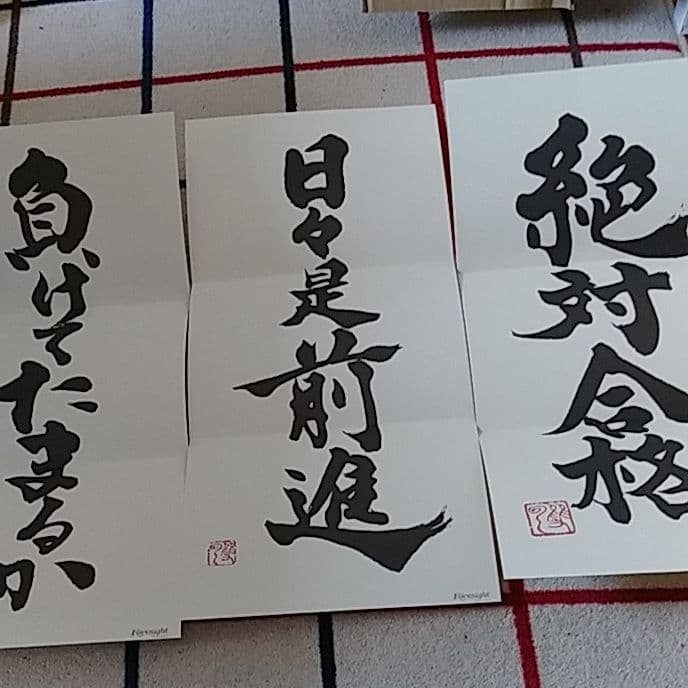 絶対合格
日々是前進
負けてたまるか
Foresight
Foresight